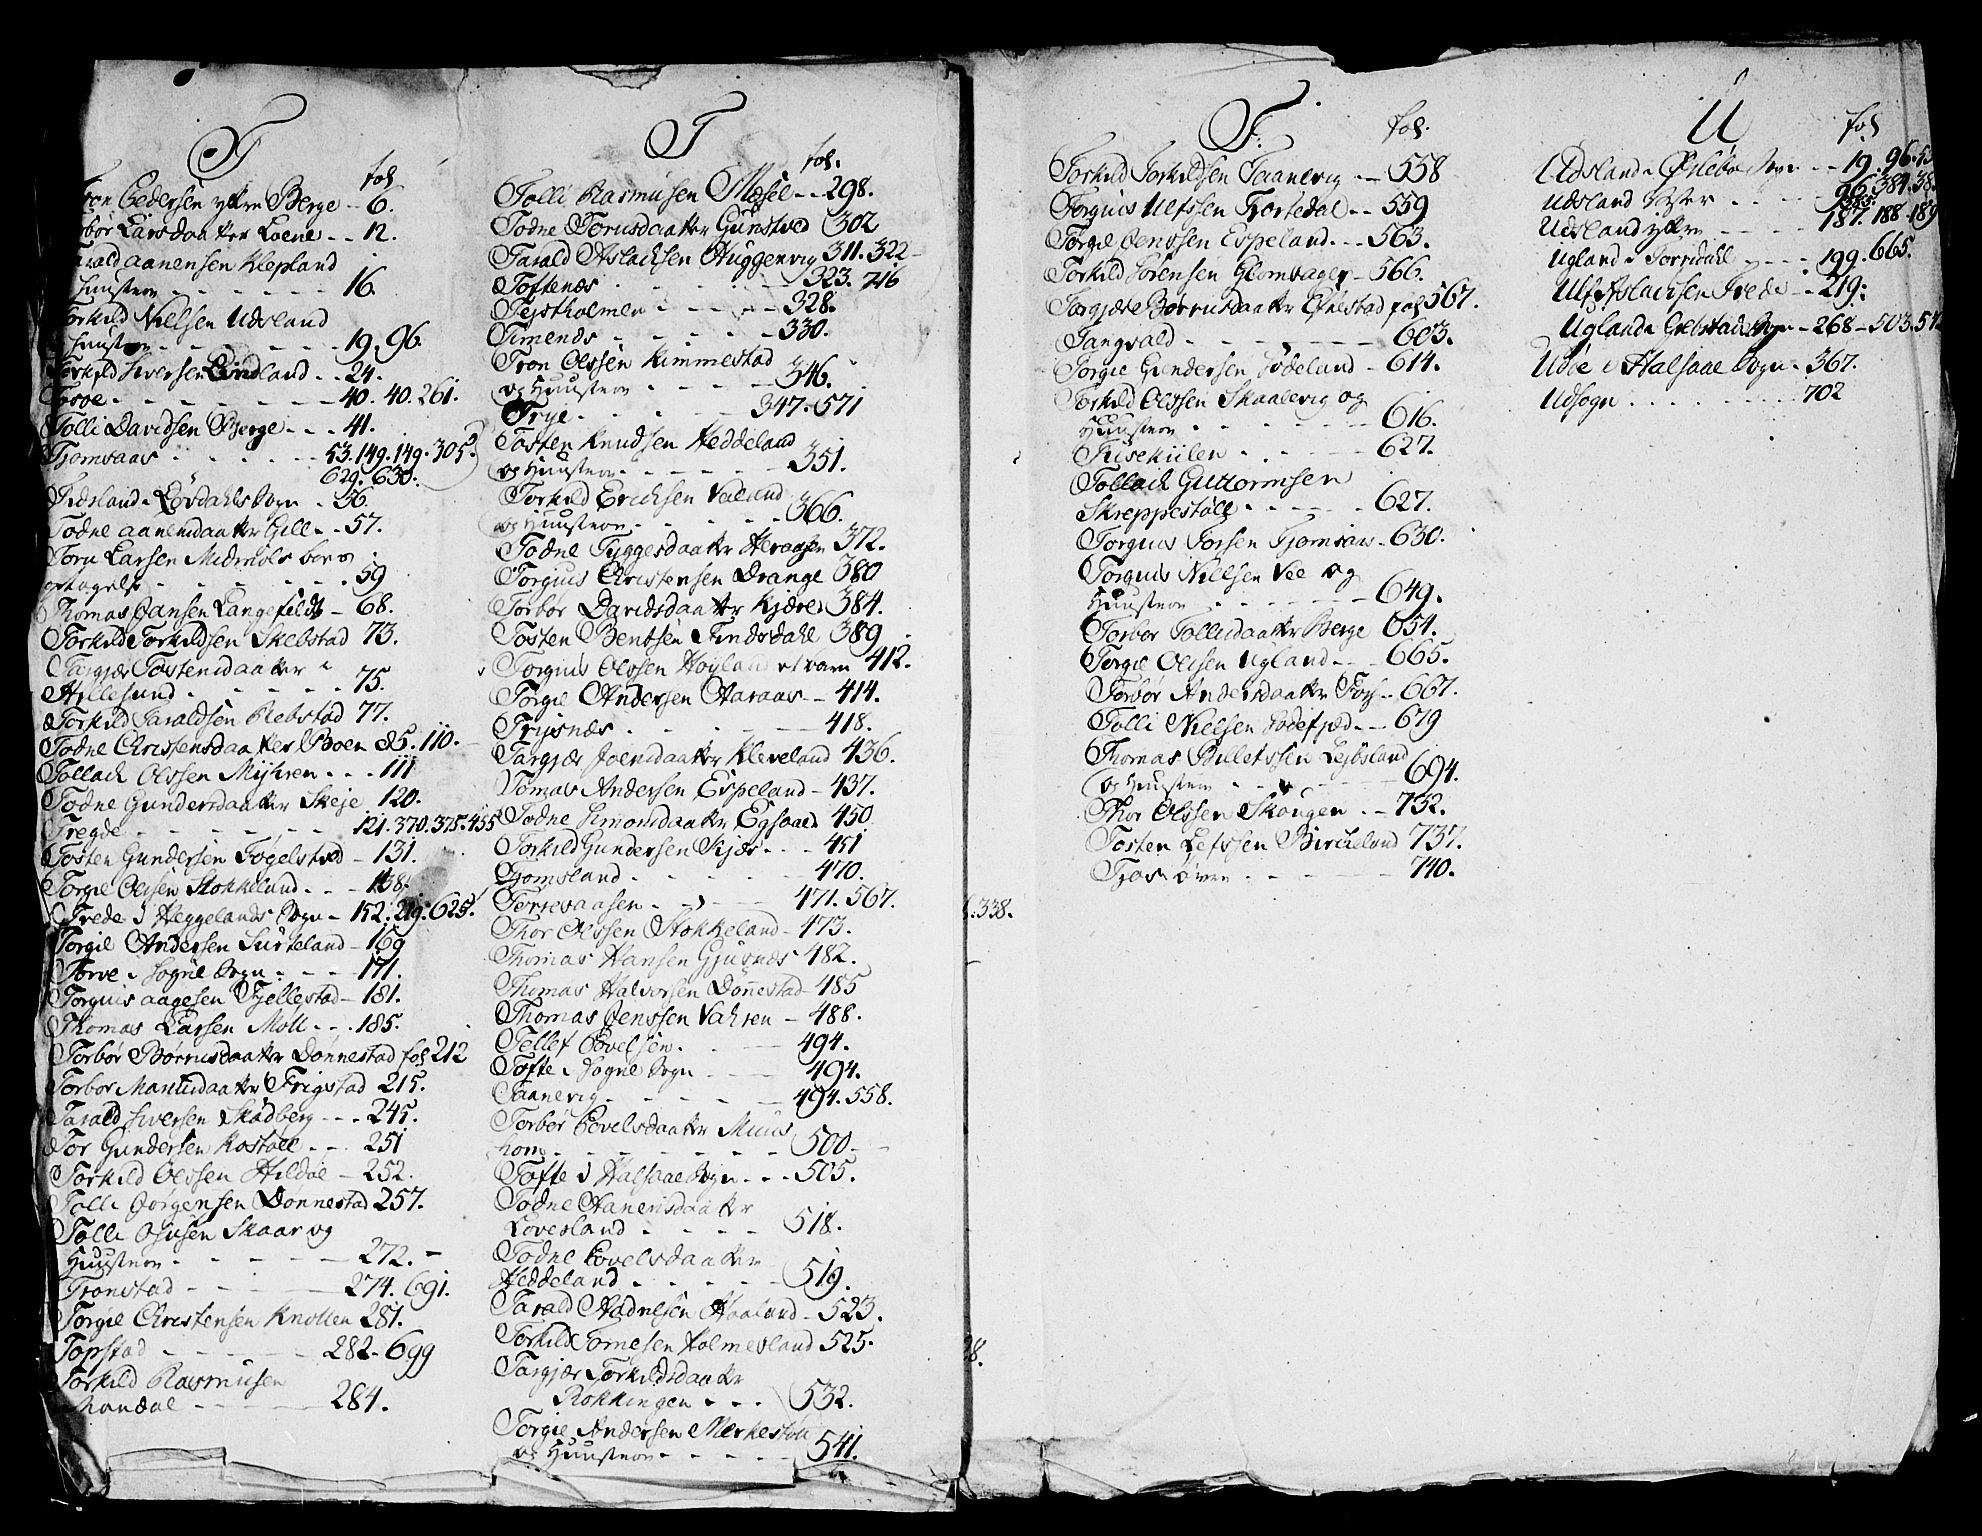 T
fol.
Tron Pedersen yttre Berge - - 6.
Torbor Larsdaatter Loene - - 12.
Tarald Aanensen Klepland
Huustroe - - - - 16.
Torkild Nielsen Udsland
Huustroe - - - - 19. 96.
Torkild Iversen Lindland - - 24.
Tosoe - - - - 40. 40. 261.
Tolli Davidsen Bierge - - - 41.
Tjomsaas - - - - 53. 149. 149. 305.
629. 630.
Tidsland i Løvdahls Sogn - 56.
Todne Aanensdaatter Gill - - 57.
Toru Larsen Midmöls
- - - - 59
Thomas Jansen Langefeldt - 68.
Torkild Torkildsen Skebstad 73.
Targjær Tostensdaatter
Hillesund - - - - 75.
Torkild Taraldsen Rebstad 77.
Todne Christensdaatter Boen 85. 110.
Tollach Olssen Myhren - - - 111
Todne Gundersdaatter Skeje 120.
Tregde - - - - 121. 370. 375. 455
Tosten Gundersen Fogelstved - 131.
Torgie Olssen Stokkeland - - - 138.
Trede i Heggelands Sogn - 152. 219. 625.
Torgie Andersen Surteland - 169
Torve i Sogne Sogn - - - 171.
Torguis Aagesen Fjellestad - 181.
Thomas Larsen Moll - - - 185.
Torbør Børrusdaatter Dønnestad fol 212
Torbor Mansdaatter Frigstad 215.
Tarald Iversen Skadberg - - - 245.
Tor Gundersen Kostøll - - - 251
Torkild Olssen Hildøe - 252.
Tolli Jørgensen Dønnestad 257.
Tolli Osusen Skaar og
Huustroe - - - - 272.
Tronstad - - - - 274. 691.
Torgie Christensen Knollen 281.
Topstad - - - - 282. 699
Torkild Rasmusen
Mandal - - - - 284.
T
fol.
Tolli Rasmusen Mæsel - - 298.
Todne Torusdaatter Gunstved 302
Tarald Aslachsen Huggenvig 311. 322
Toftenæs - - - - 323. 746
Tejstholmen - - - - 328.
Timends - - - - 330.
Tron Olssen Kimmestad
og Huustroe - - - - 346.
Trye - - - - 347. 571
Tosten Knudsen Heddeland
og Huustroe - - - - 351.
Torkild Erichsen Valand
og Huustroe - - - - 366.
Todne Tyggesdaatter Heraasen 372.
Torgius Christensen Drange 380
Torbor Davidsdaatter Kjære 384.
Tosten Bentsen Findsdahl 389
Torguis Olssen Høyland et barn 412.
Torgie Andersen Aaraas - - 414.
Trysnes - - - - 418.
Targjær Joensdaatter Kleveland 436.
Tomas Andersen Espeland - 437.
Todne Simonsdaatter Egsaaed 450
Torkild Gundersen Skjær - - - 451
Tjomsland - - - - 470.
Torjevaasen - - - - 471. 567.
Thor Olssen Stokkeland - 473.
Thomas Hansen Gjusnæs 482.
Thomas Halvorsen Dønnestad - 485
Thomas Jenssen Vahren - 488.
Tellef Povelsen - - - 494.
Tofte i Sogne Sogn - - - 494.
Taanevig - - - - 494. 558.
Torbor Povelsdaatter Muus
hom - - - - 500.
Tofte i Halsaae Sogn - - - 505.
Todne Aanensdaatter
Lovesland - - - - 518.
Todne Povelsdaatter
Heddeland - - - - 519.
Tarald Aadnesen Haaland - 523.
Torkild Tomesen Holmesland 525.
Targjær Torkildsdaatter
Rokkingen - - - 532.
Torgie Andersen Merkestøll
og Huustroe - - - - 541.
338.
28.
T.
fol.
Torkild Torkildsen Taanevig - - 558
Torguis Ulfssen Fiortedal - - 559
Torgie Jenssen Espeland - - - 563.
Torkild Sorensen Glomsager - 566.
Torgjær Børrusdaatter Ørlestad fol 567.
Tangvald - - - - 603.
Torgie Gundersen Sødeland - 614.
Torkild Olssen Skaalevig og
Huustroe - - - - 616.
Tusekiilen - - - - 627.
Tollach Guttormsen
Skreppestøll - - - - 627.
Torguis Torsen Tjomsaas - 630.
Torguis Nielsen Vee og
Huustroe - - - - 649.
Torbor Tollisdaatter Berge 654.
Torgie Olssen Ugland - - - 665.
Torbør Andersdaatter Fos - - 667.
Tolli Nielsen Sodefjed - - 679
Thomas Buletssen Lejbsland
og Huustroe - - - - 694.
Thor Olssen Skougen - - 732.
Tosten Lefssen Birckeland 737.
Tjos øren - - - - 740.
U
fol
Udsland i Øslebø Sogn - - 19. 96. 53
Udsland - - - - 96. 384. 38.
385.
Udsland yttre - - - - 187. 188. 189
Ugland i Torridahl - - - 199. 665.
Ulf Aslachsen Trede - - 219.
Ugland i Sogn - 268 - 503. 57
Udøe i Halsaae Sogn - 367.
Udsogn - - - - 702